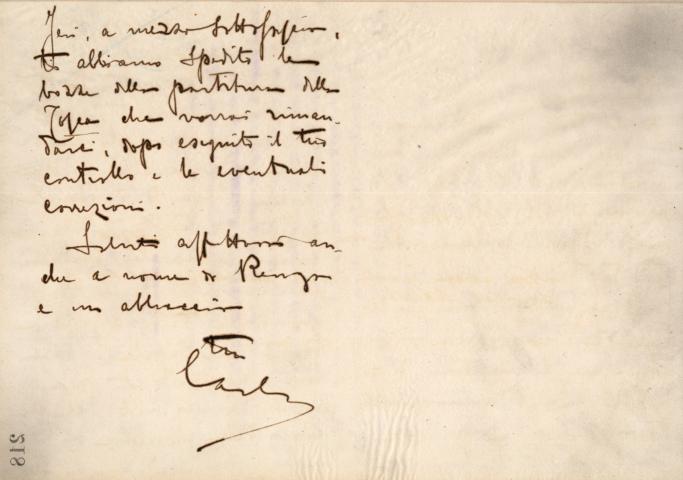 Jeri, a mezzo sottofascia,
ti abbiamo spedito le
bozze della partitura della
Tosca che vorrai riman-
darci, dopo eseguito il tuo
controllo e le eventuali
correzioni.
Saluti affettuosi an-
che a nome di Renzo
e un abbraccio
tuo
Carlo
218